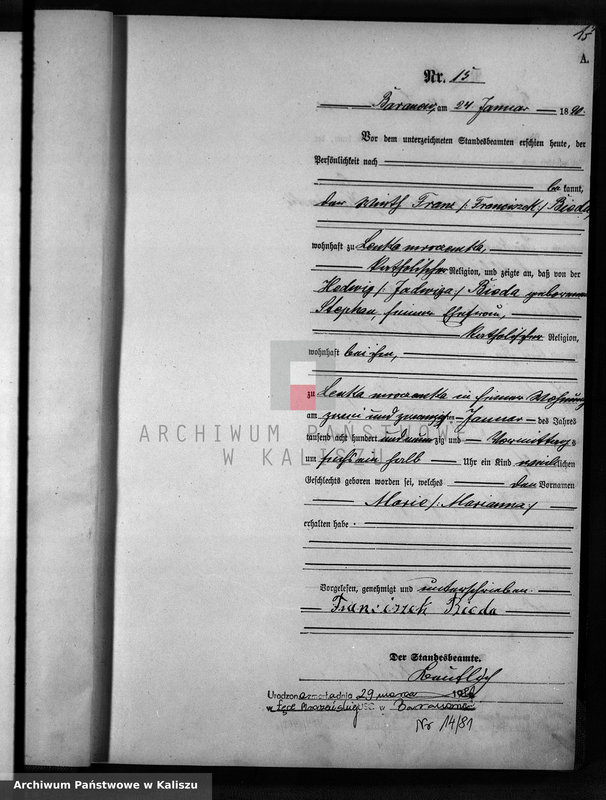 15
A.
Nr. 15
Baranow, am 24 Januar 1890.
Vor dem unterzeichneten Standesbeamten erschien heute, der
Persönlichkeit nach
be kannt,
der Wirth Franz /: Franciszek :/ Bieda
wohnhaft zu Lenka mroczenska,
katholischer Religion, und zeigte an, daß von der
Hedwig /: Jadwiga :/ Bieda geborenen
Stephan, seiner Ehefrau,
katholischer Religion,
wohnhaft bei ihm,
zu Lenka mroczenska in seiner Wohnung
am zwei und zwanzigsten Januar des Jahres
tausend acht hundert und neunzig und Vormittags
um ein halb Uhr ein Kind weiblichen
Geschlechts geboren worden sei, welches den Vornamen
Marie /: Marianna :/
erhalten habe.
Vorgelesen, genehmigt und unterschrieben.
Franciszek Bieda
Der Standesbeamte.
29 marca
w USC w Baranowie
Nr 14/81
ARCHIWUM PAŃSTWOWE
W KALISZU
Archiwum Państwowe w Kaliszu